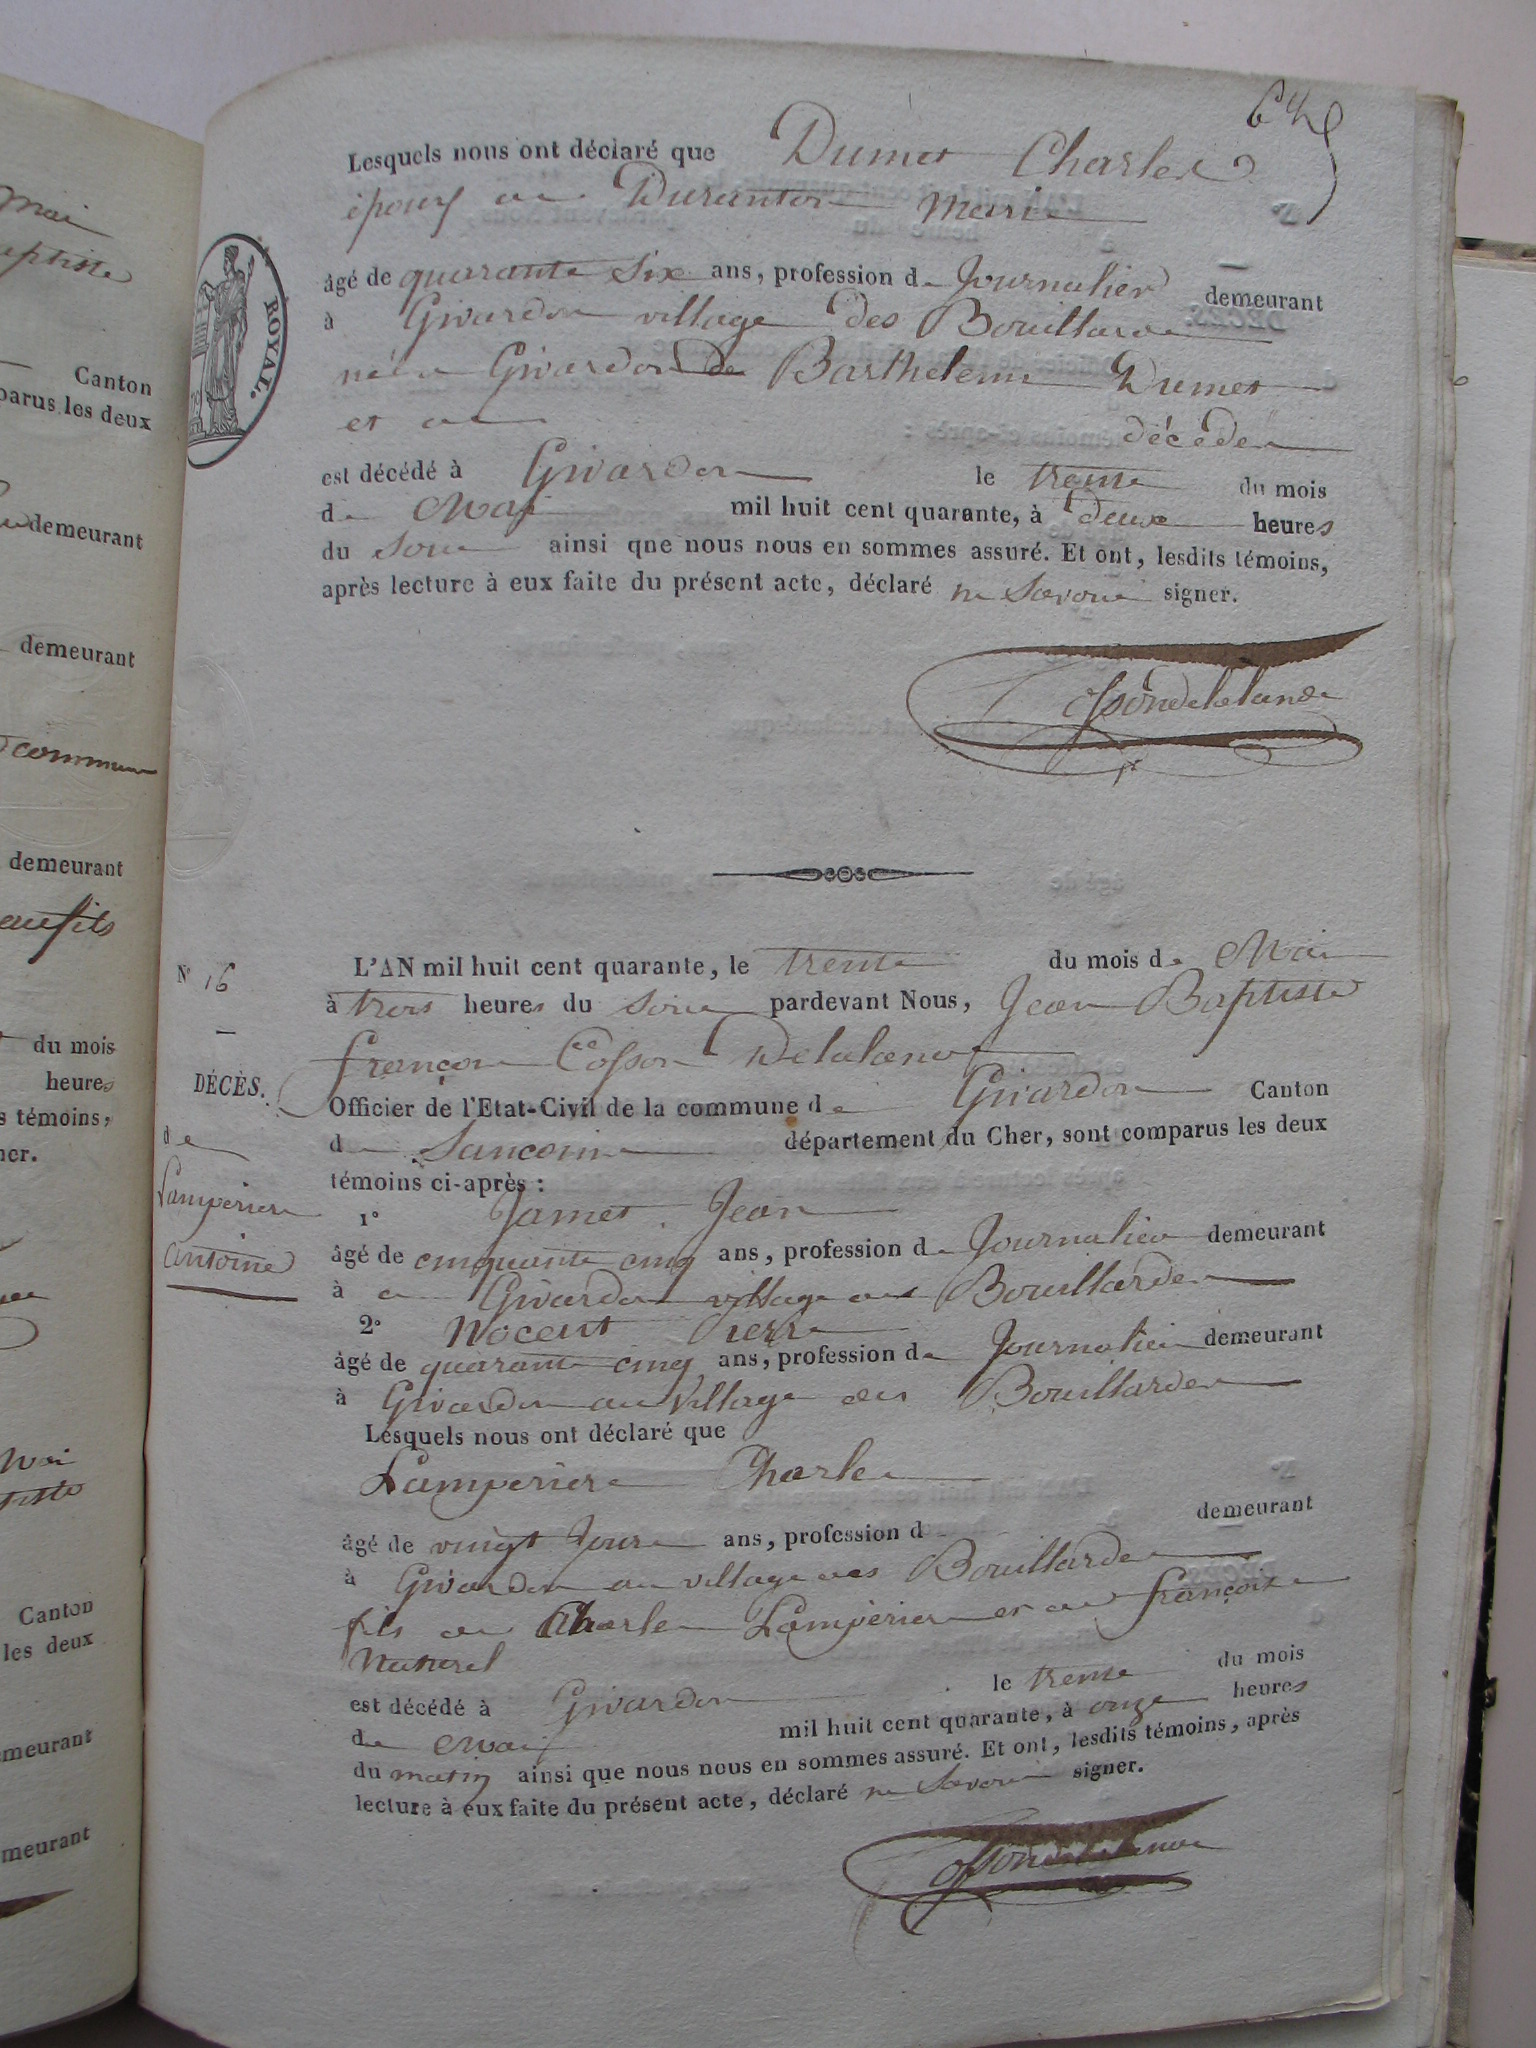 mai
aptiste
Canton
parus les deux
demeurant
demeurant
commun
demeurant
du mois
heures
s témoins,
ner.
mai
Canton
les deux
meurant
meurant
ROYAL.
Lesquels nous ont déclaré que Dumet Charles
époux de Duranton Marie
âgé de quarante Six ans, profession de Journalier demeurant
à Givardon village des Bouillards
né à Givardon de Barthelemi Dumet
et de décédés
est décédé à Givardon le trente du mois
de Mai mil huit cent quarante, à deux heures
du Soir ainsi que nous nous en sommes assuré. Et ont, lesdits témoins,
après lecture à eux faite du présent acte, déclaré ne Savoir signer.
Cossondelalande
N° 16
DÉCÈS.
de
Lamperiere
antoine
L'AN mil huit cent quarante, le trente du mois de Mai
à trois heures du Soir pardevant Nous, Jean Baptiste
françois Cosson Delalande
Officier de l'Etat-Civil de la commune de Givardon Canton
de Sancoins département du Cher, sont comparus les deux
témoins ci-après :
1° Jamet Jean
âgé de cinquante cinq ans, profession de Journalier demeurant
à Givardon village des Bouillards
2° Nocent Pierre
âgé de quarante cinq ans, profession de Journalier demeurant
à Givardon au Village des Bouillards
Lesquels nous ont déclaré que
Lamperiere Charle
âgé de vingt Jours ans, profession d demeurant
à Givardon au village des Bouillards
fils de Charle Lamperiere et de françoise
Naturel
est décédé à Givardon le trente du mois
de Mai mil huit cent quarante, à onze heures
du matin ainsi que nous nous en sommes assuré. Et ont, lesdits témoins, après
lecture à eux faite du présent acte, déclaré ne Savoir signer.
Cossondelalande